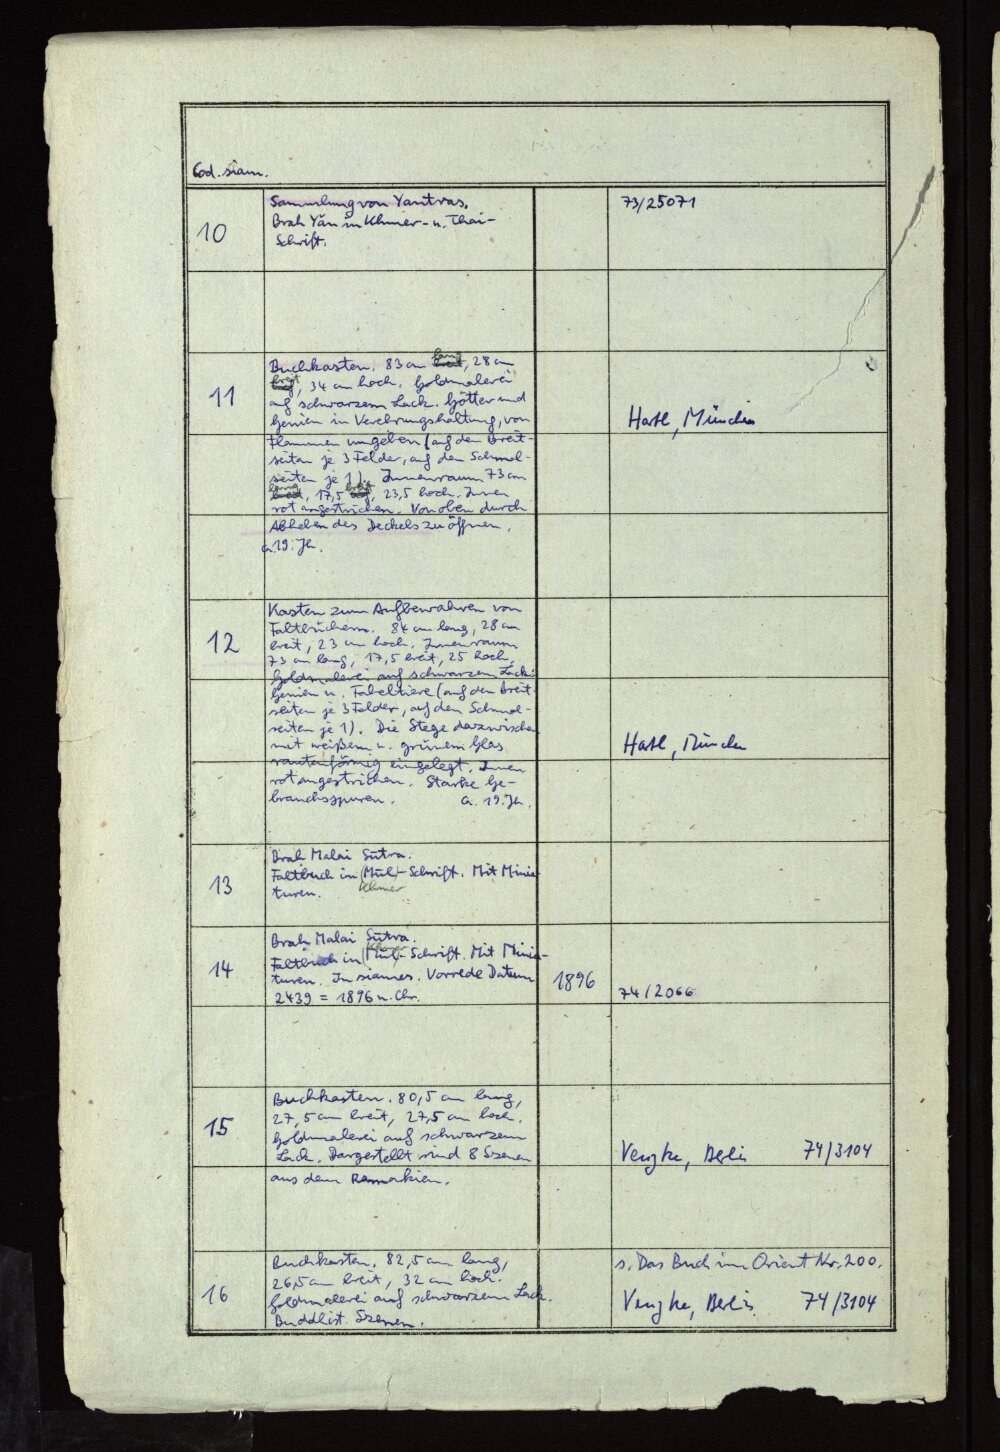 Cod. siam.
10
Sammlung von Yantras.
Brah Yăn in Khmer- u. Thai-
Schrift.
73/25071
11
Buchkasten. 83 cm lang, 28 cm
breit, 34 cm hoch. Goldmalerei
auf schwarzem Lack. Götter und
Genien in Verehrungshaltung, von
Flammen umgeben (auf den Breit-
seiten je 3 Felder, auf den Schmal-
seiten je 1). Innenraum 73 cm
lang, 17,5 breit, 23,5 hoch. Innen
rot angestrichen. Von oben durch
Abheben des Deckels zu öffnen.
ca. 19. Jh.
Hartl, München
12
Kasten zum Aufbewahren von
Faltbüchern. 84 cm lang, 28 cm
breit, 23 cm hoch. Innenraum
73 cm lang, 17,5 breit, 25 hoch.
Goldmalerei auf schwarzem Lack:
Genien u. Fabeltiere (auf den Breit-
seiten je 3 Felder, auf den Schmal-
seiten je 1). Die Stege dazwischen
mit weißem u. grünem Glas
rautenförmig eingelegt. Innen
rot angestrichen. Starke Ge-
brauchsspuren. ca. 19. Jh.
Hartl, München
13
Brah Malai Sūtra.
Faltbuch in (Mūl)-Schrift. Mit Minia-
turen. Khmer
14
Brah Malai Sūtra.
Khmer
Faltbuch in (Mūl)-Schrift. Mit Minia-
turen. In siames. Vorrede Datum
2439 = 1896 n. Chr.
1896
74/2066
15
Buchkasten. 80,5 cm lang,
27,5 cm breit, 27,5 cm hoch.
Goldmalerei auf schwarzem
Lack. Dargestellt sind 8 Szenen
aus dem Ramakien.
Venzke, Berlin 74/3104
16
Buchkasten. 82,5 cm lang,
26,5 cm breit, 32 cm hoch.
Goldmalerei auf schwarzem Lack.
Buddhist. Szenen.
s. Das Buch im Orient Nr. 200.
Venzke, Berlin 74/3104